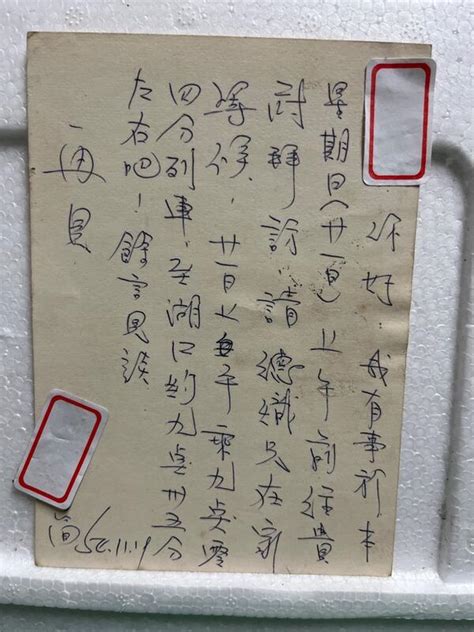 你好：我有事祈本
星期日(廿一日)上午前往貴
府拜訪，請德織兄在家
等候，廿一日上午乘九点零
四分列車，至湖口約九点卅五分
左右吧！餘言見談
再見
簡 54.11.19